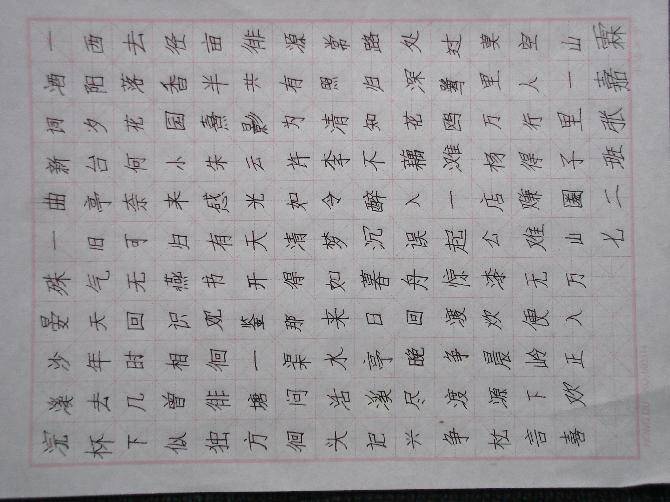 浣溪沙晏殊一曲新词酒一
杯去年天气旧亭台夕阳西
下几时回无可奈何花落去
似曾相识燕归来小园香径
独徘徊观书有感朱熹半亩
方塘一鉴开天光云影共徘
徊问渠那得清如许为有源
头活水来如梦令李清照常
记溪亭日暮沉醉不知归路
兴尽晚回舟误入藕花深处
争渡争渡惊起一滩鸥鹭过
松源晨炊漆公店杨万里莫
言下岭便无难赚得行人空
喜欢正入万山圈子里一山
七二班张嘉霖